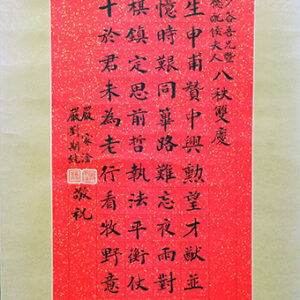 少谷吾兄暨
德配侯夫人
八秩雙慶
生申甫贊中興勲望才猷並
憶時艱同蓽路難忘夜雨對
棋鎮定思前哲執法平衡仗
十於君未為老行看牧野意
嚴家淦
嚴劉期純
敬祝